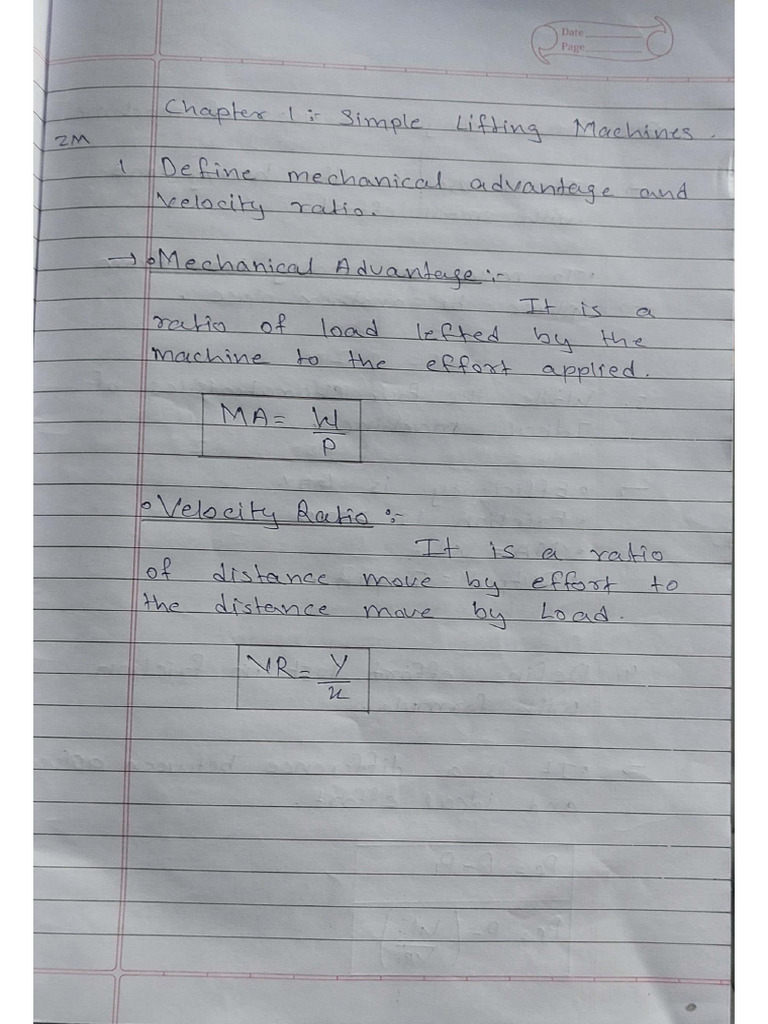 Date
Page
Chapter 1:- Simple Lifting Machines.
2M
1 Define mechanical advantage and
Velocity ratio.
→ • Mechanical Advantage:-
It is a
ratio of load lefted by the
machine to the effort applied.
MA = W/P
• Velocity Ratio :-
It is a ratio
of distance move by effort to
the distance move by Load.
VR = Y/x